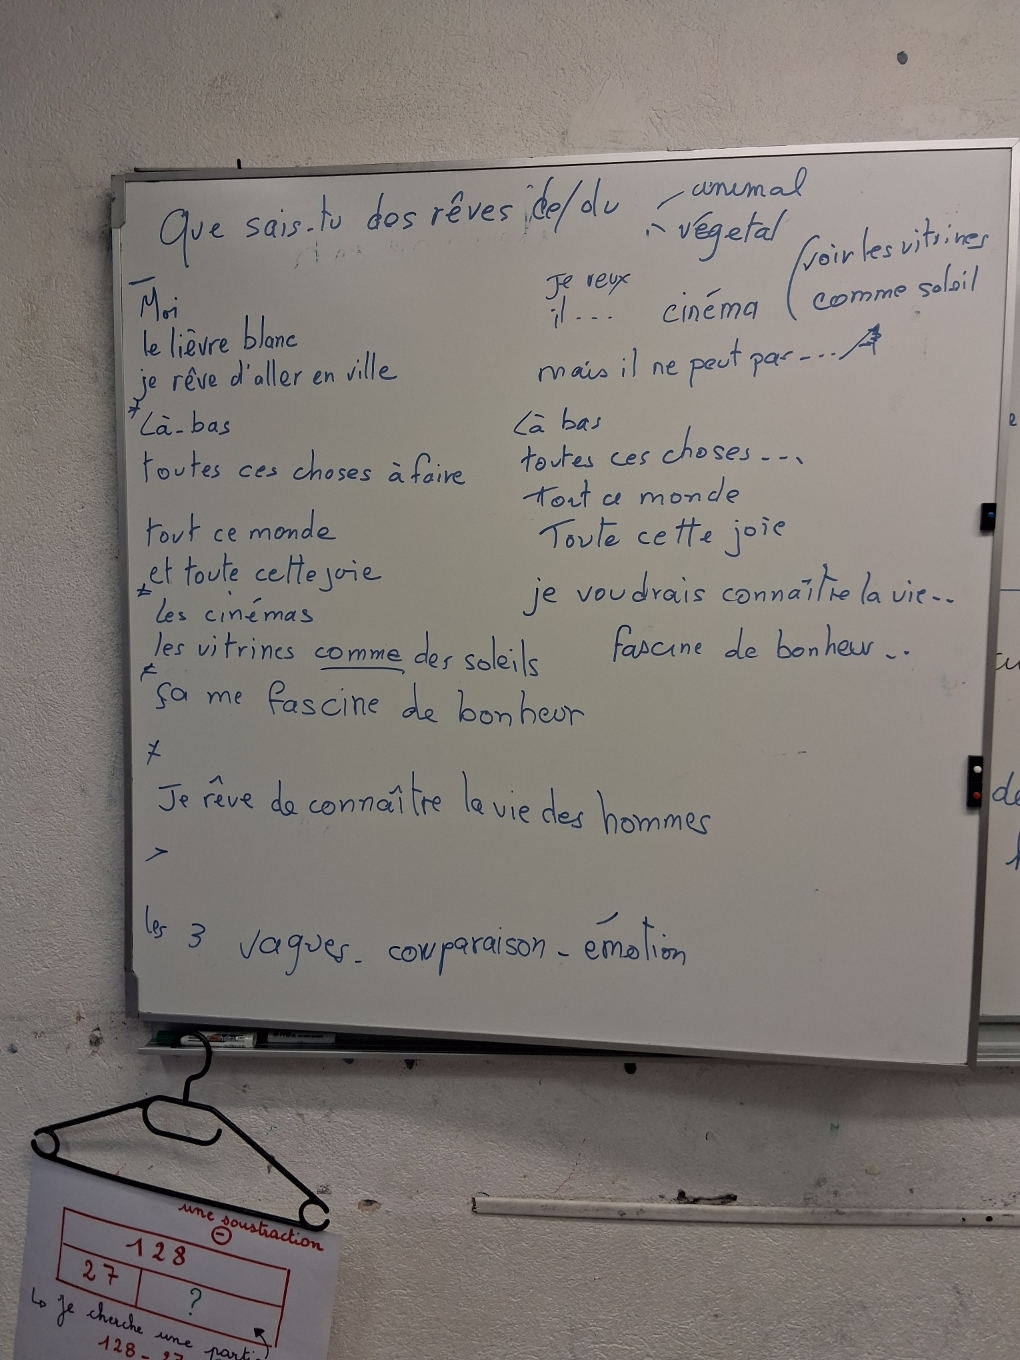 Que sais-tu dos rêves de/du
animal
végétal
Moi
le lièvre blanc
je rêve d'aller en ville
Là-bas
toutes ces choses à faire
tout ce monde
et toute cette joie
les cinémas
les vitrines comme des soleils
ça me fascine de bonheur
Je rêve de connaître la vie des hommes
les 3 vagues - comparaison - émotion
Je veux
il...
cinéma
voir les vitrines
comme soleil
mais il ne peut pas ---
Là bas
toutes ces choses ---
Tout ce monde
Toute cette joie
je voudrais connaître la vie..
fascine de bonheur ..
de
une soustraction
-
128
27
?
↳ Je cherche une partie
128 - 27